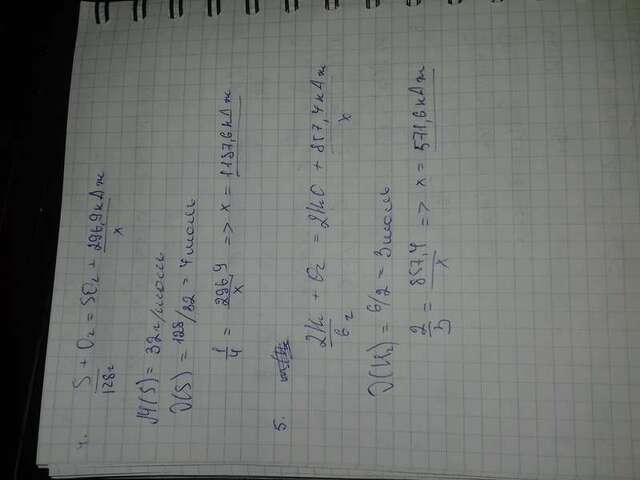 4. S + O₂ = SO₂ + 296,9 кДж
128г x
M(S) = 32 г/моль
ν(S) = 128/32 = 4 моль
1/4 = 296,9/x => x = 1187,6 кДж
5.
2H₂ + O₂ = 2H₂O + 857,4 кДж
6г x
ν(H₂) = 6/2 = 3 моль
2/3 = 857,4/x => x = 571,6 кДж